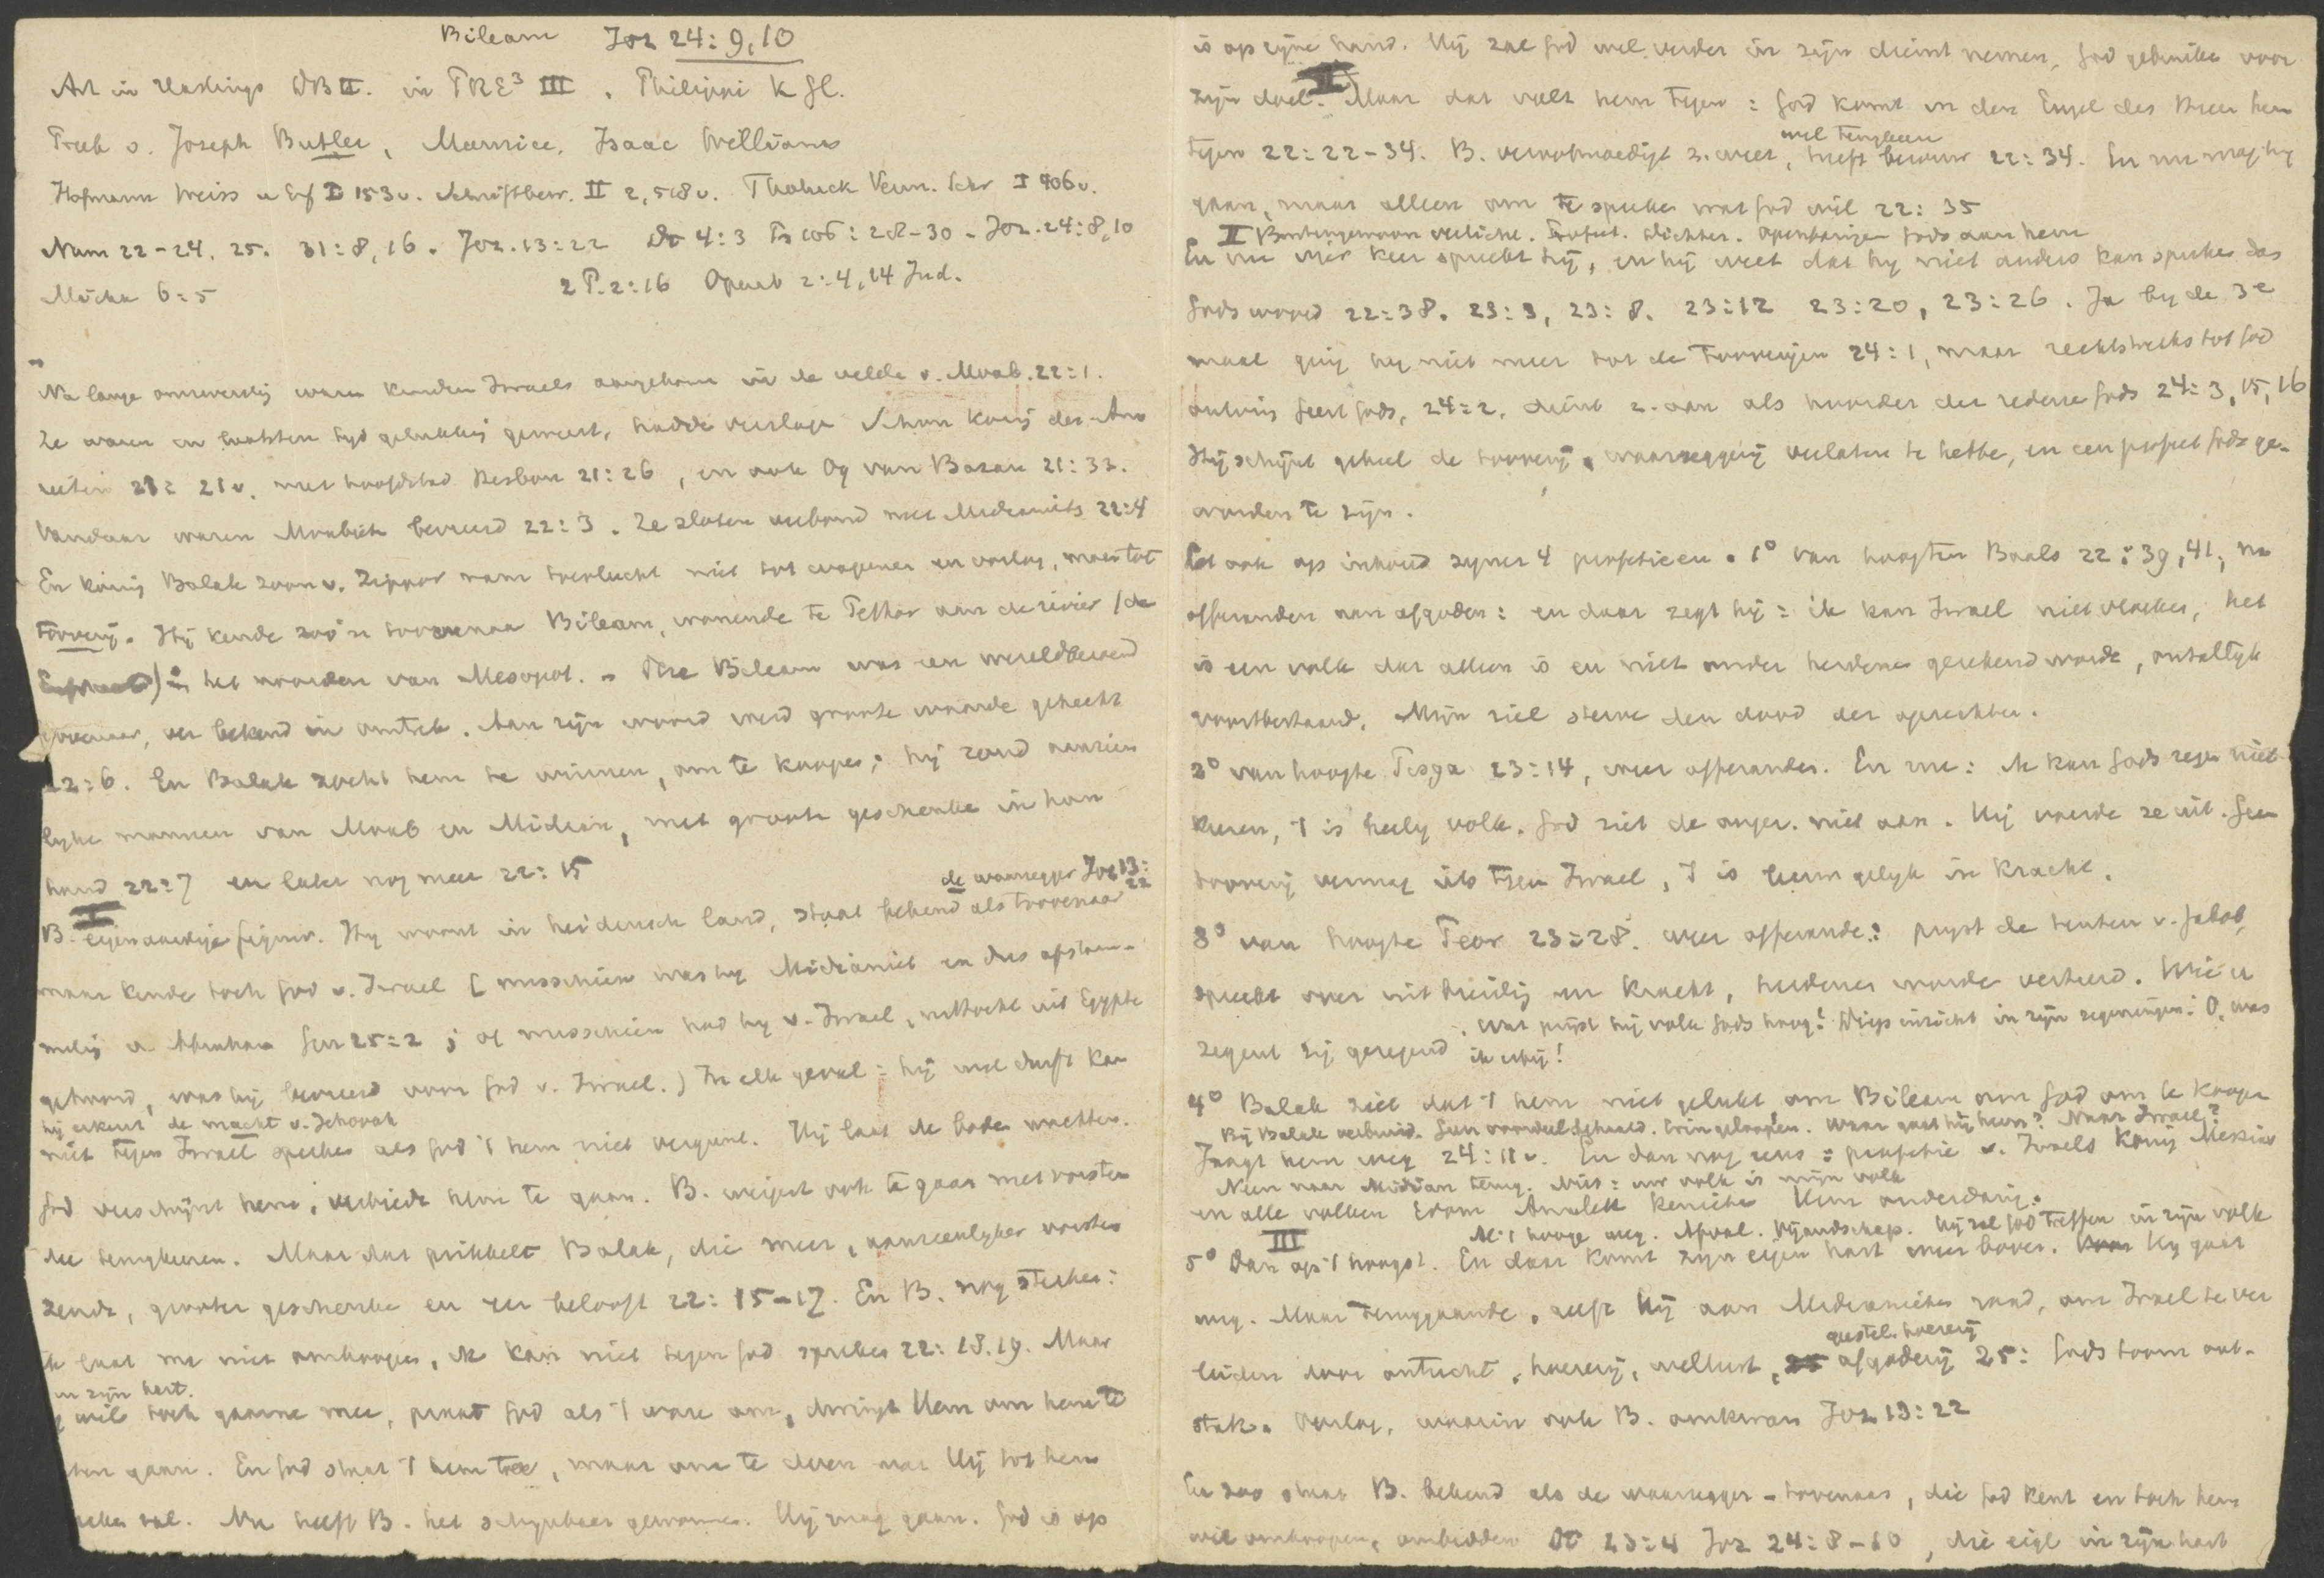 Bileam Joz 24:9,10
Art in Hastings DB II. in PRE³ III. Philippi K Gl.
Preek v. Joseph Butler, Maurice, Isaac Williams
Hofmann Weiss u Erf I 153v. Schriftbew. II 2,518v. Tholuck Verm. Schr I 406v.
Num 22-24, 25. 31:8,16. Joz. 13:22 4:3 Ps 106:28-30 - Joz. 24:8,10
Micha 6:5 2 P. 2:16 Openb 2:4,14 Jud.
Na lange omzwerving waren kinderen Israels aangekomen in de velden v. Moab. 22:1.
Ze waren in laatsten tijd gelukkig geweest, hadden verslagen Sihon koning der Amo
rieten 21:21v. met hoofdstad Hesbon 21:26, en ook Og van Bazan 21:33.
Vandaar waren Moabieten bevreesd 22:3. Ze sloten verbond met Midianiets 22:4
En koning Balak zoon v. Zippor nam toevlucht niet tot wapenen en oorlog, maar tot
toovery. Hij kende zoo'n toovenaar Bileam, wonende te Pethor aan de rivier (de
) in het noorden van Mesopot. Die Bileam was een wereldberoemd
toovenaar, ver bekend in omtrek. Aan zijn woord werd groote waarde gehecht
22:6. En Balak zocht hem te winnen, om te koopen; hij zond aanzien
lyke mannen van Moab en Midian, met groote geschenken in hun
hand 22:7 en later nog meer 22:15
de waarzegger Joz 13:22
I
B. eigenaardige figuur. Hy woont in heidensch land, staat bekend als toovenaar
maar kende toch God v. Israel [misschien was hy Midianiet en dus afstam-
meling v. Abraham Gen 25:2; of misschien had hy v. Israel, uittocht uit Egypte
gehoord, was hij bevreesd voor God v. Israel.) In elk geval: hij wel durft kan
hij erkent de macht v. Jehovah
niet tegen Israel spreken als God 't hem niet vergunt. Hij laat de boden wachten.
God verschijnt hem, verbiedt hem te gaan. B. weigert ook te gaan met vorsten
die terugkeeren. Maar dat prikkelt Balak, die meer, aanzienlyker vorsten
zendt, grooter geschenken en eer belooft 22:15-17. En B. nog sterker:
ik laat me niet omkoopen, ik kan niet tegen God spreken 22:18.19. Maar
in zijn hart.
wil toch gaarne mee, praat God als 't ware om, dwingt Hem om hem te
laten gaan. En God staat 't hem toe, maar om te doen wat Hij tot hem
spreken zal. Nu heeft B. het schijnbaar gewonnen. Hij mag gaan. God is op
is op zijne hand. Hij zal God wel verder in zijn dienst nemen, God gebruiken voor
II
zijn doel. Maar dat valt hem tegen: God komt in den Engel des Heeren hem
wil terugkeeren
tegen 22:22-34. B. verootmoedigt z. weer, heeft berouw 22:34. En nu mag hij
gaan, maar alleen om te spreken wat God wil 22:35
II Buitengewoon verlicht. Profeet. Dichter. Openbaringen Gods aan hem
En nu vier keer spreekt hij, en hij weet dat hy niet anders kan spreken dan
Gods woord 22:38. 23:3, 23:8. 23:12 23:20, 23:26. Ja by de 3e
maal ging hy niet meer tot de tooveryen 24:1, maar rechtstreeks tot God
ontving Geest Gods, 24:2, dient z. aan als hoorder der redenen Gods 24:3,15,16
Hij schijnt geheel de toovery, waarzeggerij verlaten te hebben, en een profeet Gods ge-
worden te zijn.
Let ook op inhoud zyner 4 profetieen. 1° van hoogten Baals 22:39,41, na
offeranden aan afgoden: en daar zegt hij: ik kan Israel niet vloeken, het
is een volk dat alleen is en niet onder heidenen gerekend worde, ontallyk
voortbestaand. Mijn ziel sterve den dood der oprechten.
2° van hoogte Pisga 23:14, weer offeranden. En nu: ik kan Gods zegen niet
keeren, 't is heilig volk. God ziet de onger. niet aan. Hij voerde ze uit. Geen
toovery vermag iets tegen Israel, 't is leeuw gelyk in kracht.
3° van hoogte Peor 23:28. weer offerande: pryst de tenten v. Jakob,
spreekt over uitbreiding en kracht, heidenen worden verteerd. Wie u
zegent zij gezegend. Wat prijst hij volk Gods hoog! Diep inzicht in zijn zegeningen: O, was
ik erbij!
4° Balak ziet dat 't hem niet gelukt om Bileam om God om te koopen
Bij Balak verbruid. Geen voordeel behaald. Erin geloopen. Waar gaat hij heen? Naar Israel?
Jaagt hem weg 24:11v. En dan nog eens: profetie v. Israels koning Messias
Neen naar Midian terug. Niet: uw volk is mijn volk
en alle volken Edom Amalek Kenieten Hem onderdanig.
III Al 't hooge weg. Afval. Vijandschap. Hij zal God treffen in zijn volk
5° Dan op 't hoogst. En daar komt zijn eigen hart weer boven. Hy gaat
weg. Maar teruggaande, geeft hij aan Midianieten raad, om Israel te ver
geestel. hoererij
leiden door ontucht, hoererij, wellust, afgoderij 25: Gods toorn ont-
stak. Oorlog, waarin ook B. omkwam Joz 13:22
En zoo staat B. bekend als de waarzegger-toovenaar, die God kent en toch hem
wil omkoopen, ombidden Dt 23:4 Joz 24:8-10, die eigl in zijn hart